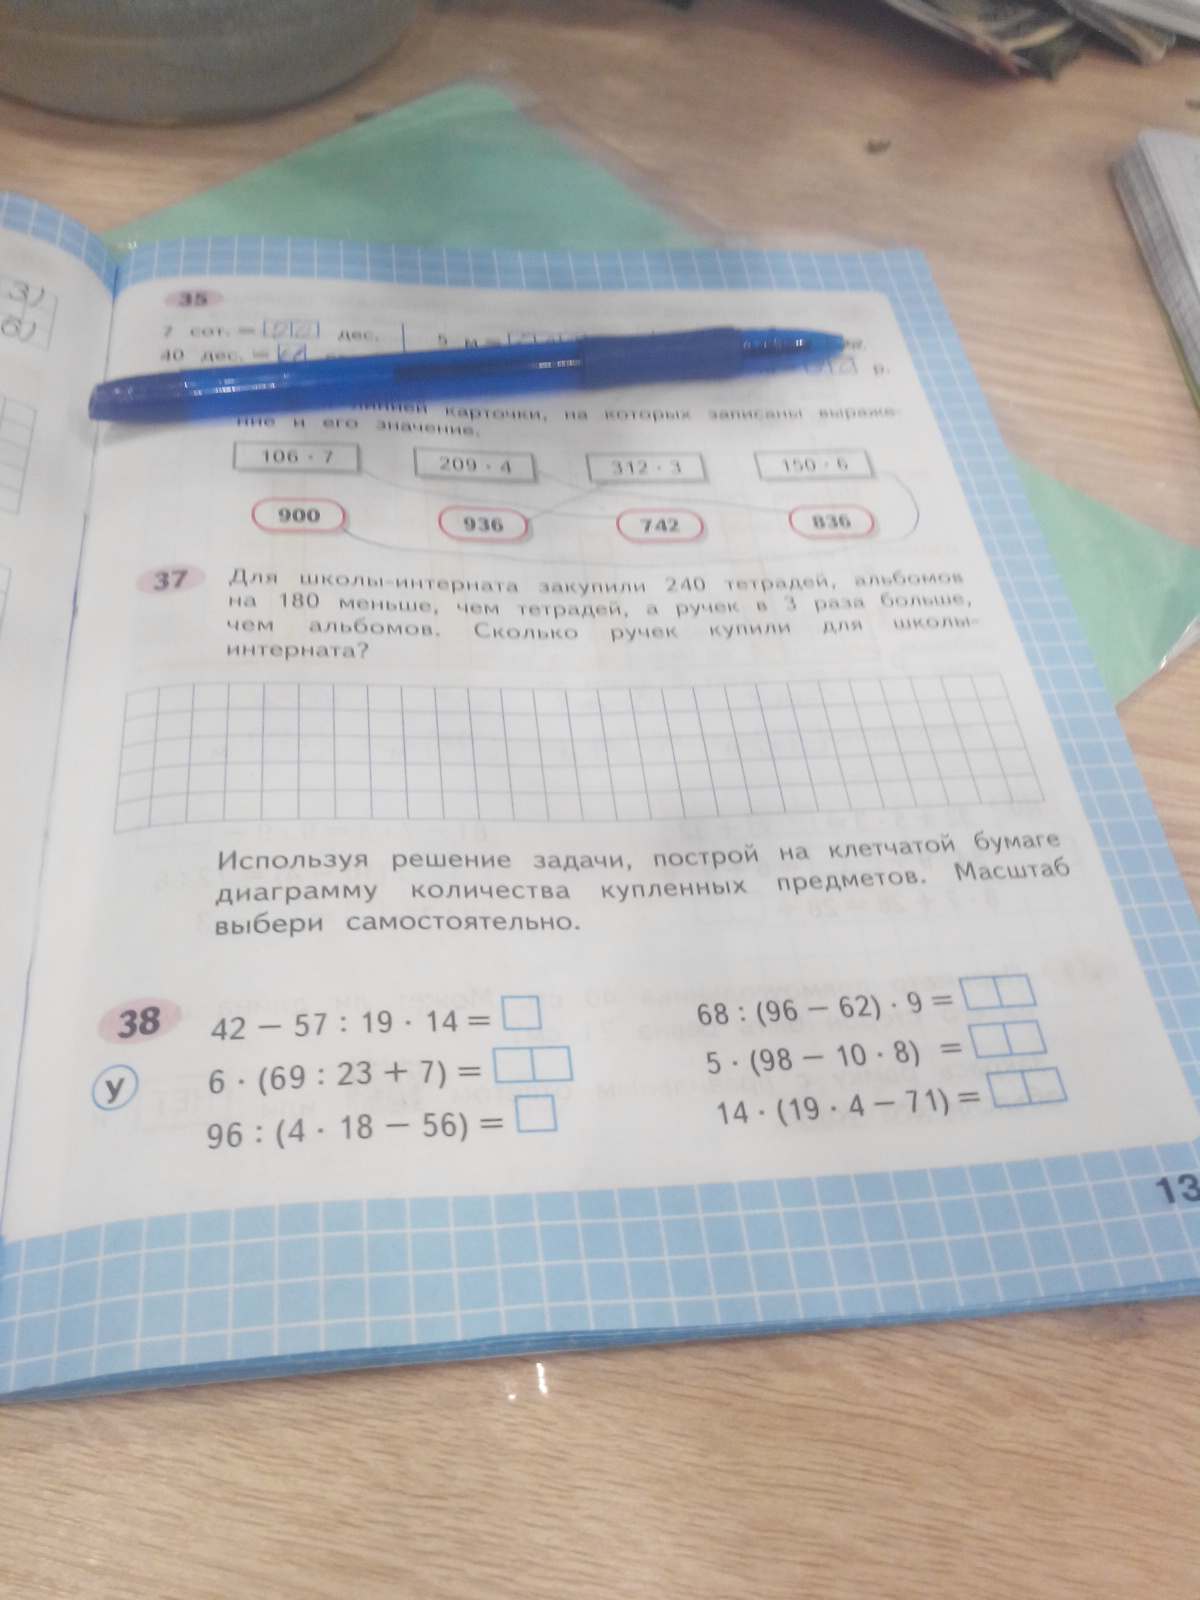 3)
6)
35
7 сот. = дес.
5 м =
40 дес. =
р.
линией карточки, на которых записаны выраже-
ние и его значение.
106 · 7 209 · 4 312 · 3 150 · 6
900 936 742 836
37 Для школы-интерната закупили 240 тетрадей, альбомов
на 180 меньше, чем тетрадей, а ручек в 3 раза больше,
чем альбомов. Сколько ручек купили для школы-
интерната?
Используя решение задачи, построй на клетчатой бумаге
диаграмму количества купленных предметов. Масштаб
выбери самостоятельно.
38 42 − 57 : 19 · 14 =
У 6 · (69 : 23 + 7) =
96 : (4 · 18 − 56) =
68 : (96 − 62) · 9 =
5 · (98 − 10 · 8) =
14 · (19 · 4 − 71) =
13